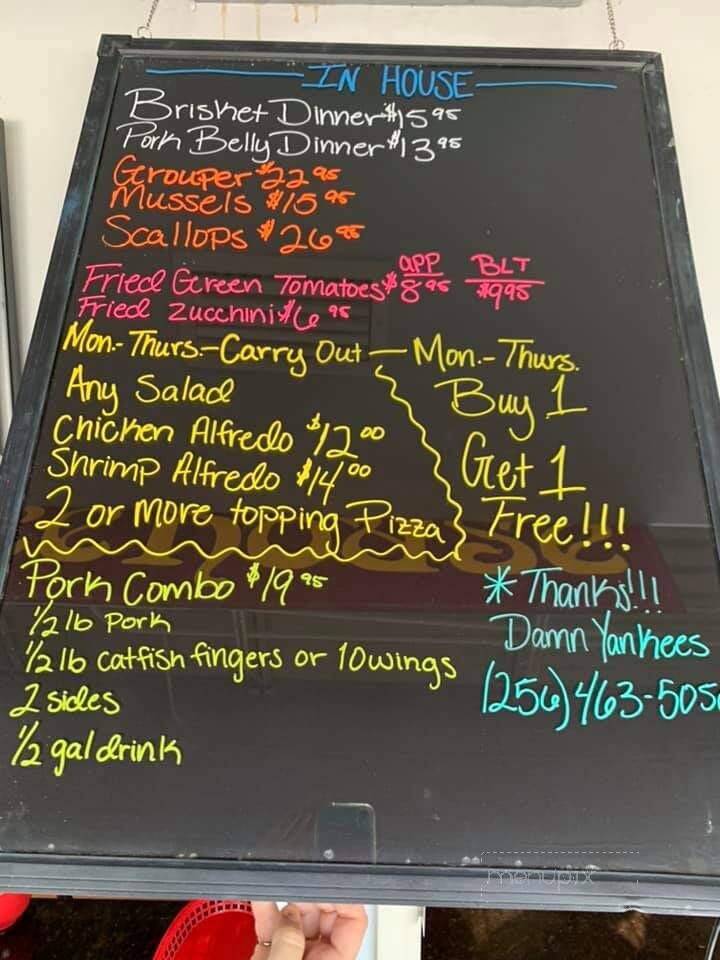 IN HOUSE
Brisket Dinner $15 95
Pork Belly Dinner $13 95
Grouper $22 95
Mussels $15 95
Scallops $26 95
APP BLT
Fried Green Tomatoes $8 95 $9 95
Fried Zucchini $6 95
Mon.- Thurs.- Carry Out — Mon.- Thurs.
Any Salad
Chicken Alfredo $12 00
Shrimp Alfredo $14 00
2 or more topping Pizza
Buy 1
Get 1
Free!!!
Pork Combo $19 95
1/2 lb Pork
1/2 lb catfish fingers or 10 wings
2 sides
1/2 gal drink
* Thanks!!!
Damn Yankees
(256) 463-505
menupix